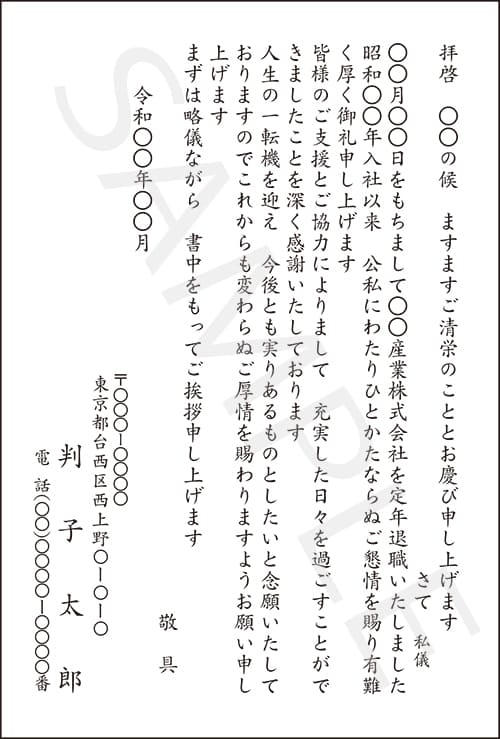 拝啓　〇〇の候　ますますご清栄のこととお慶び申し上げます
さて　私儀
〇〇月〇〇日をもちまして〇〇産業株式会社を定年退職いたしました
昭和〇〇年入社以来　公私にわたりひとかたならぬご懇情を賜り有難
く厚く御礼申し上げます
皆様のご支援とご協力によりまして　充実した日々を過ごすことがで
きましたことを深く感謝いたしております
人生の一転機を迎え　今後とも実りあるものとしたいと念願いたして
おりますのでこれからも変わらぬご厚情を賜わりますようお願い申し
上げます
まずは略儀ながら　書中をもってご挨拶申し上げます
敬具
令和〇〇年〇〇月
〒〇〇〇ー〇〇〇〇
東京都台西区西上野〇ー〇ー〇
判子太郎
電話(〇〇)〇〇〇〇ー〇〇〇〇番
SAMPLE